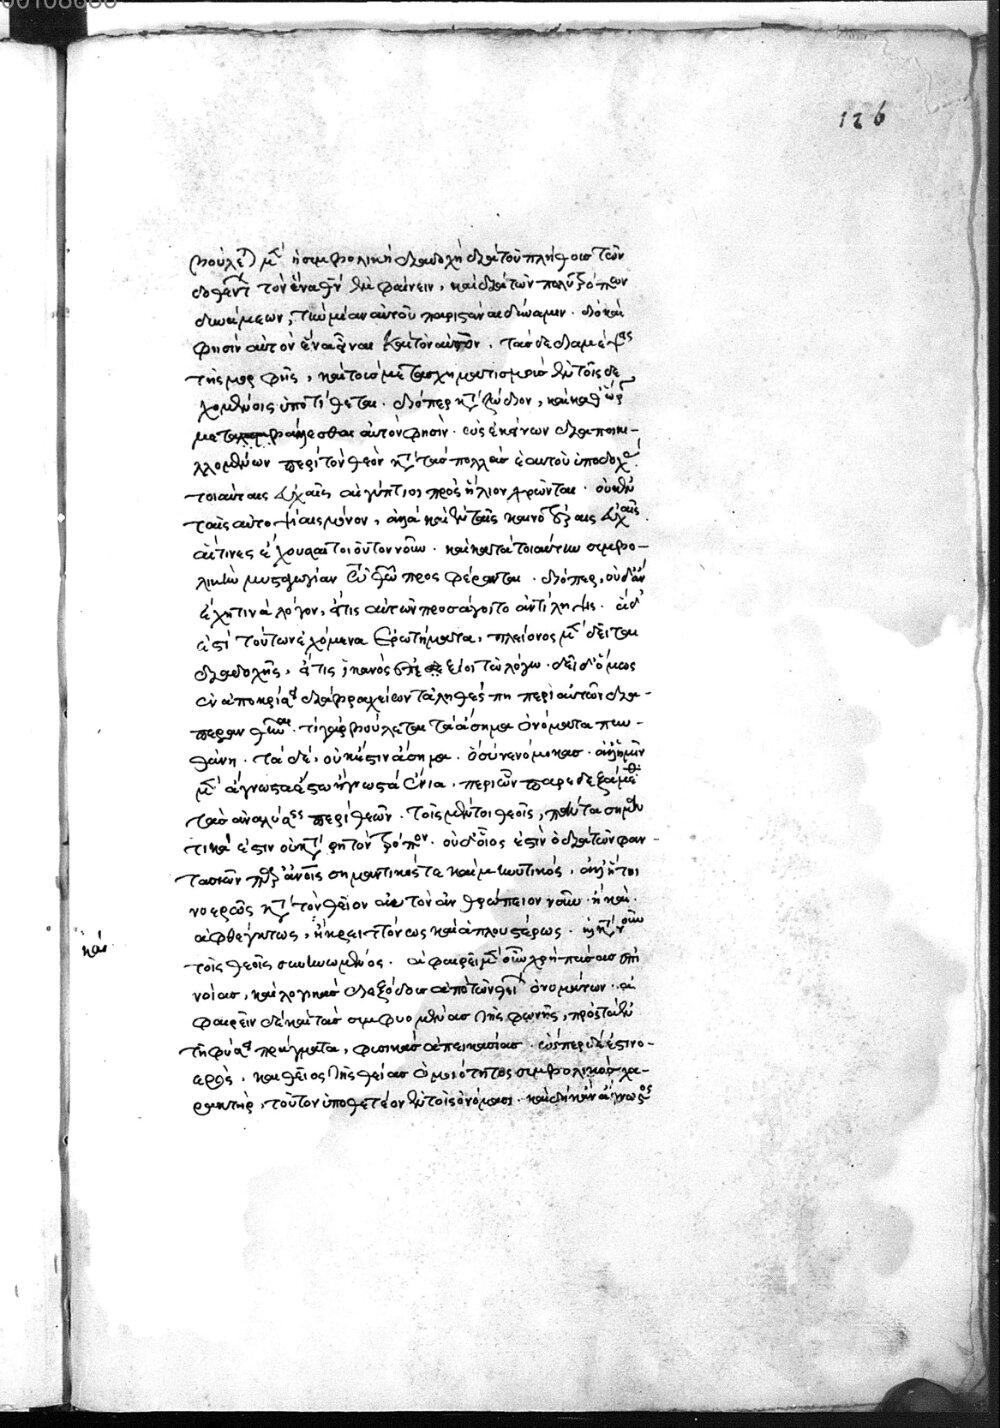 126
βούλεται μὲν ἡ συμβολικὴ διαδοχὴ διὰ τοῦ πλήθους τῶν
δοθέντων τὸν ἕνα θεὸν ἐμφαίνειν, καὶ διὰ τῶν πολυτρόπων
δυνάμεων, τὴν μίαν αὐτοῦ παριστάναι δύναμιν. διὸ καὶ
φησὶν αὐτὸν ἕνα εἶναι καὶ τὸν αὐτὸν. τὰς δὲ διαμείψεις
τῆς μορφῆς, καὶ τοὺς μετασχηματισμοὺς ἐν τοῖς δε
χομένοις ὑποτίθεται. διόπερ κατὰ ζώδιον, καὶ καθ' ὥραν
μεταβάλλεσθαι αὐτόν φησιν. ὡς ἐκείνων διαποικι-
λλομένων περὶ τὸν θεὸν κατὰ τὰς πολλὰς ἑαυτοῦ ὑποδοχάς.
τοιαύταις εὐχαῖς αἰγύπτιοι πρὸς ἥλιον χρῶνται. οὐκ ἐν
ταῖς αὐτοψίαις μόνον, ἀλλὰ καὶ ἐν ταῖς κοινοτέραις εὐχαῖς.
αἵτινες ἔχουσι τοιοῦτον νοῦν. καὶ κατὰ τοιαύτην συμβο-
λικὴν μυσταγωγίαν τῷ θεῷ προσφέρονται. διόπερ, οὐδ' ἂν
ἔχῃ τινὰ λόγον, εἴ τις αὐτῶν προσάγοιτο ἀντίληψιν. ἀλλ'
ἐπὶ τούτων ἐχόμενα ἐρωτήματα, πλείονος μὲν δεῖται
διαδοχῆς, εἴ τις ἱκανὸς εἴη τῷ λόγῳ. δεῖ δ' ὅμως
ἐν ἀποκρίσει διὰ βραχέων τἀληθὲς πῃ περὶ αὐτῶν δια-
περανθῆναι. τί γὰρ βούλεται τὰ ἄσημα ὀνόματα πυν-
θάνῃ. τὰ δὲ, οὐκ ἔστιν ἄσημα. ὃ σὺ νενόμικας. ἀλλ' ἡμῖν
μὲν ἄγνωστα ἔστω ἢ γνωστὰ ἔνια. περὶ ὧν παρεδεξάμεθα
τὰς ἀναλύσεις περὶ θεῶν. τοῖς μέντοι θεοῖς, πάντα σημαν
τικά ἐστιν οὐ κατὰ ῥητὸν τρόπον. οὐδ' οἷος ἐστὶν ὁ διὰ τῶν φαν-
τασιῶν παρ' ἀνθρώποις σημαντικός τε καὶ μηνυτικός. ἀλλ' ἤτοι
νοερῶς κατὰ τὸν θεῖον αὐτὸν ἀνθρώπειον νοῦν. ἢ καὶ
ἀφθέγκτως, ἢ κρειττόνως καὶ ἁπλουστέρως. ἢ κατὰ νοῦν
καὶ
τοῖς θεοῖς συνηνωμένος. ἀφαιρεῖν μὲν οὖν χρὴ πάσας ἐπι
νοίας, καὶ λογικὰς διεξόδους ἀπὸ τῶν θείων ὀνομάτων. ἀ
φαιρεῖν δὲ καὶ τὰς συμφυομένας τῆς φωνῆς, πρὸς τὰ ἐν
τῇ φύσει πράγματα, φυσικὰς ἀπεικασίας. ὥσπερ δέ ἐστι νο-
ερὸς, καὶ θεῖος τῆς θείας ὁμοιότητος συμβολικὸς χα-
ρακτήρ, τοῦτον ὑποθετέον ἐν τοῖς ὀνόμασι. καὶ δὴ κἂν ἄγνωστος